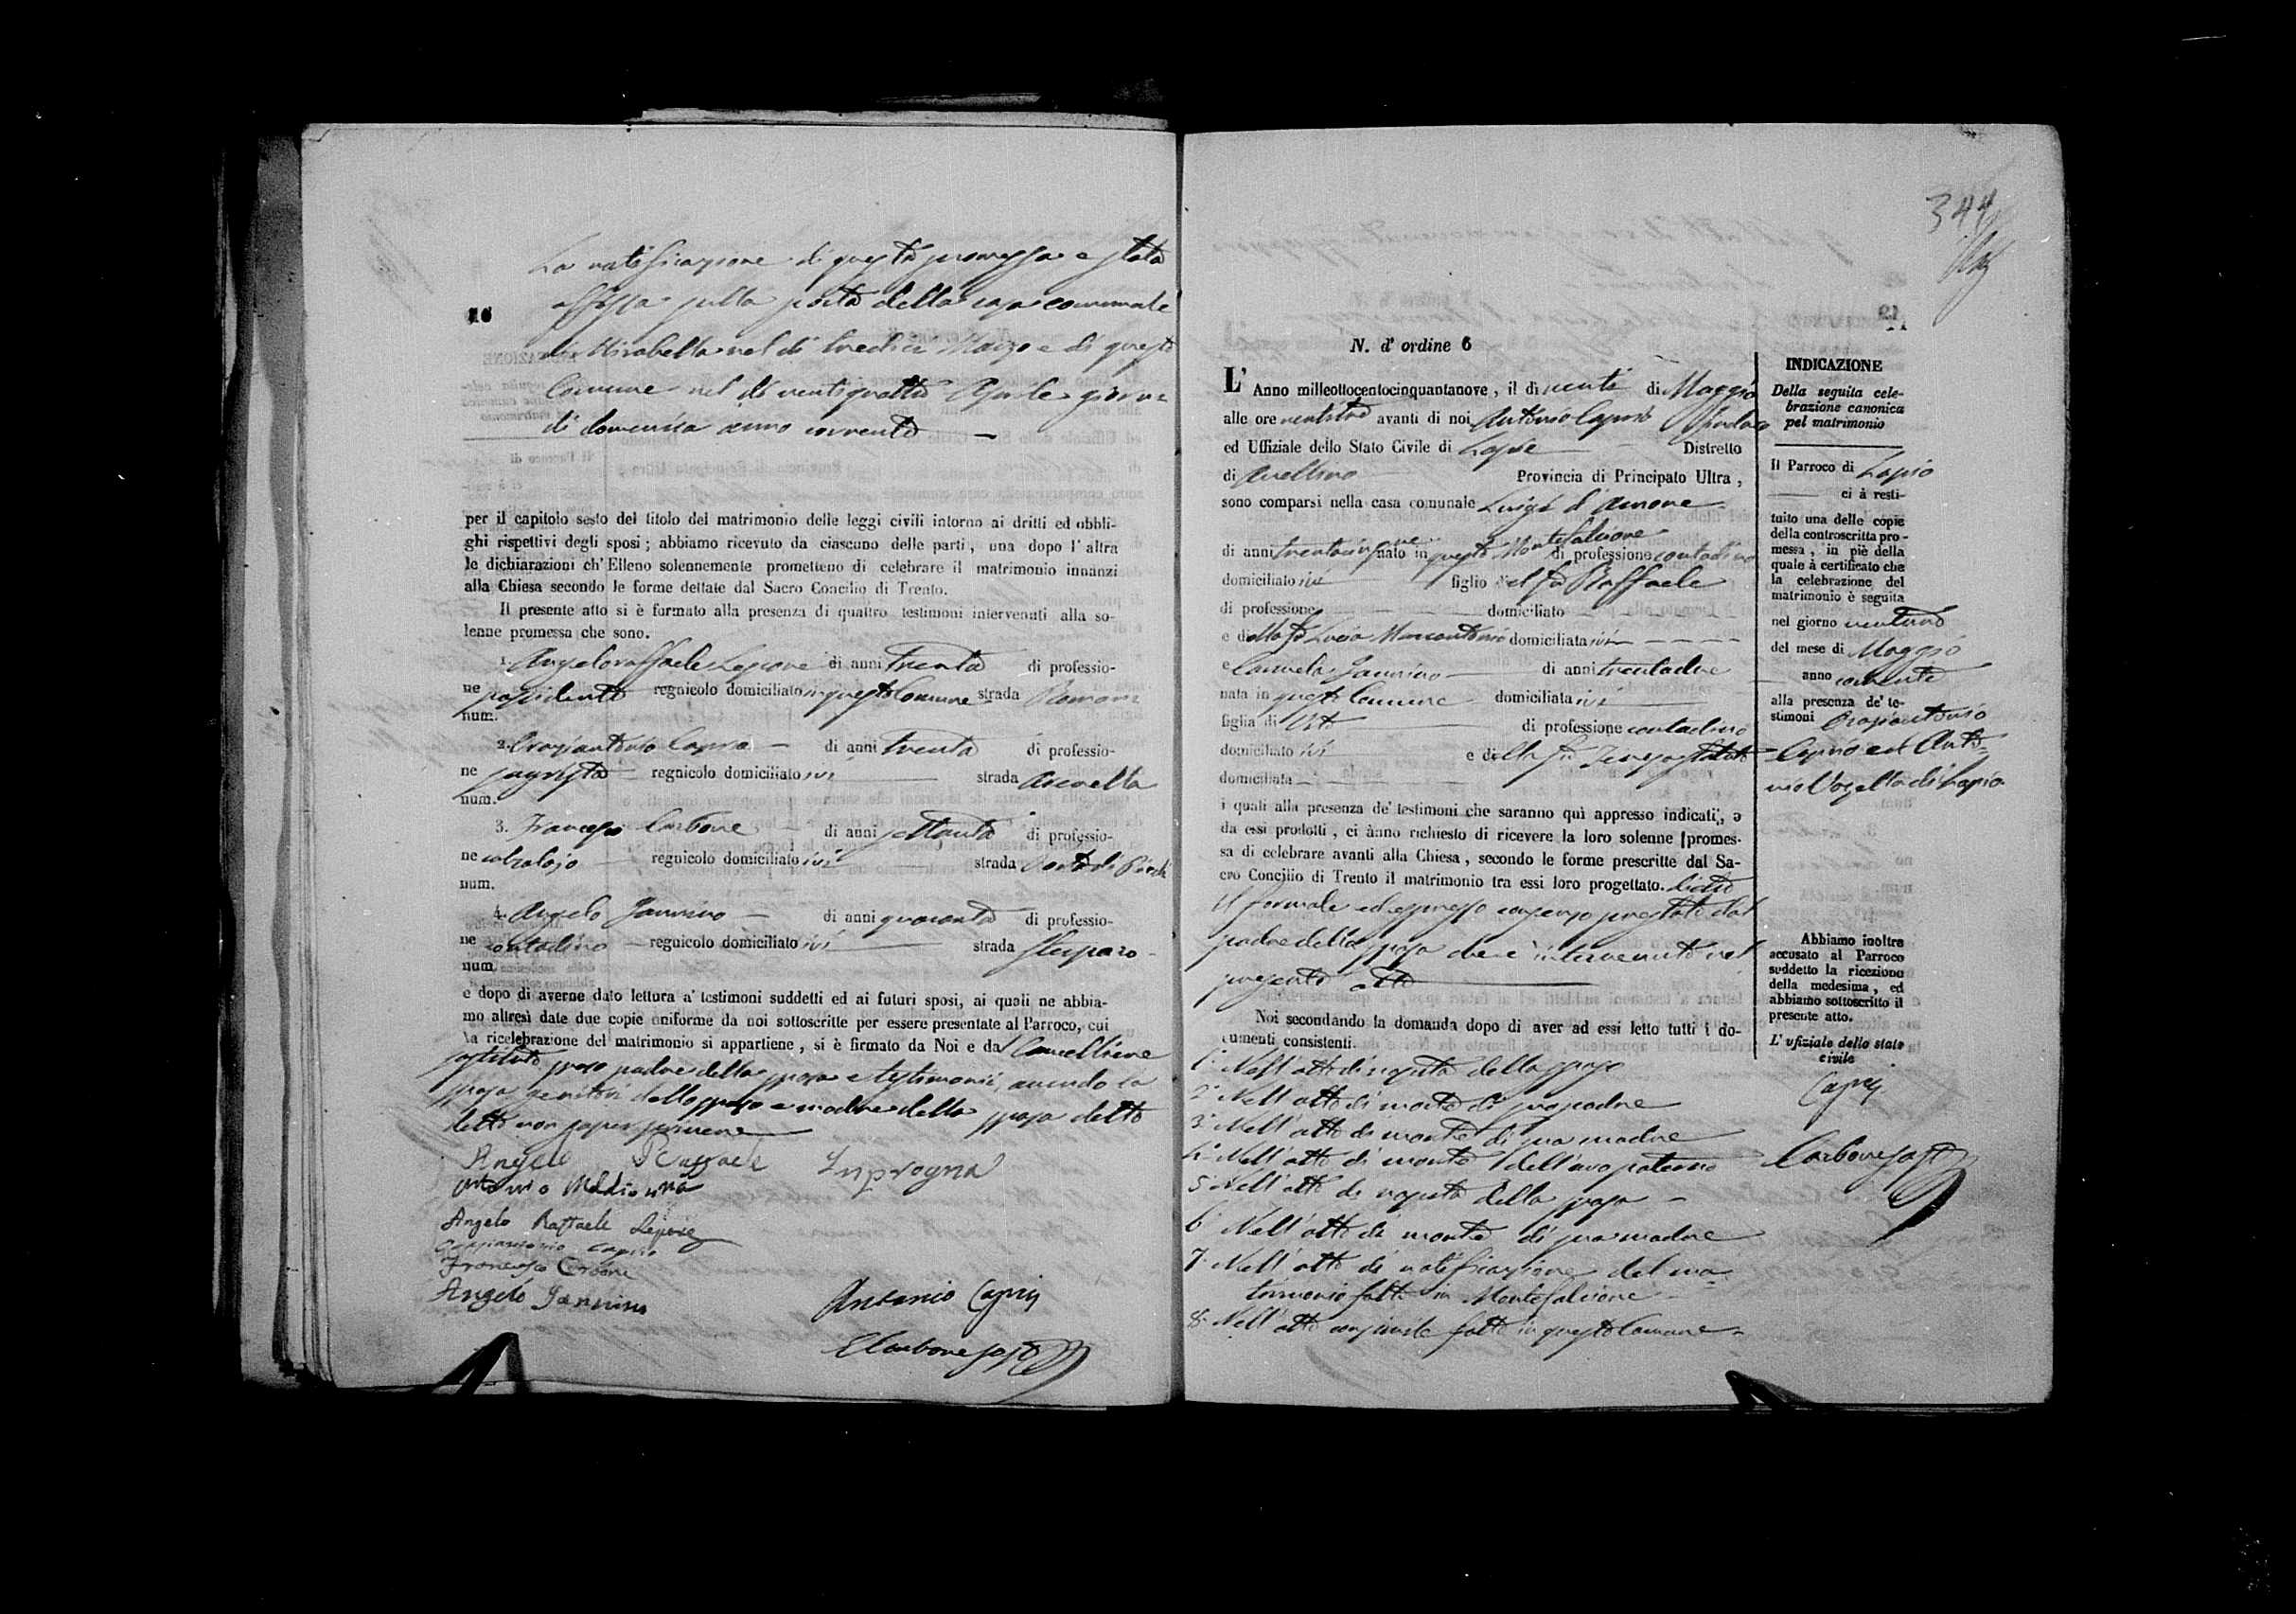 La notificazione di questa promessa è stata
affissa sulla porta della casa comunale
di Mirabella nel dì tredici Marzo e di questo
Comune nel dì ventiquattro Aprile giorni
di domenica anno corrente
per il capitolo sesto del titolo del matrimonio delle leggi civili intorno ai dritti ed obbli-
ghi rispettivi degli sposi ; abbiamo ricevuto da ciascuno delle parti , una dopo l' altra
le dichiarazioni ch' Elleno solennemente prometteno di celebrare il matrimonio innanzi
alla Chiesa secondo le forme dettate dal Sacro Concilio di Trento.
Il presente atto si è formato alla presenza di quattro testimoni intervenuti alla so-
lenne promessa che sono.
1. Angeloraffaele Lepore di anni trenta di professio-
ne possidente regnicolo domiciliato in questo Comune strada
num.
2. Oraziantonio Caprio di anni trenta di professio-
ne regnicolo domiciliato ivi strada
num.
3. Francesco Carbone di anni settanta di professio-
ne regnicolo domiciliato ivi strada
num.
4. Angelo Iannino di anni quaranta di professio-
ne contadino regnicolo domiciliato ivi strada
num.
e dopo di averne dato lettura a' testimoni suddetti ed ai futuri sposi, ai quali ne abbia-
mo altresì date due copie uniforme da noi sottoscritte per essere presentate al Parroco, cui
la ricelebrazione del matrimonio si appartiene , si è firmato da Noi e dal Cancelliere
sostituto sposo padre della sposa e testimonii, avendo la
sposa genitori dello sposo e madre della sposa detto
detto non saper scrivere
Angelo Raffaele Inprogna
Angelo Raffaele Lepore
Oraziantonio Caprio
Francesco Carbone
Angelo Iannino
Antonio Caprio
Carbone sost
344
N. d' ordine 6
L' Anno milleottocentocinquantanove , il dì venti di Maggio
alle ore avanti di noi Antonio Caprio Sindaco
ed Uffiziale dello Stato Civile di Lapio Distretto
di Avellino Provincia di Principato Ultra ,
sono comparsi nella casa comunale Luigi d'Amore
di anni trentacinque nato in Montefalcione di professione contadino
domiciliato ivi figlio del fu Raffaele
di professione domiciliato
e della fu Lucia Marcantonio domiciliata ivi
e Carmela Iannino di anni trentadue
nata in questo Comune domiciliata ivi
figlia di Vito di professione contadino
domiciliato ivi e della fu Teresa
domiciliata
i quali alla presenza de' testimoni che saranno quì appresso indicati, e
da essi prodotti , ci ànno richiesto di ricevere la loro solenne promes-
sa di celebrare avanti alla Chiesa , secondo le forme prescritte dal Sa-
cro Concilio di Trento il matrimonio tra essi loro progettato. Visto
il formale ed espresso consenso prestato dal
padre della sposa che è intervenuto nel
presente atto
Noi secondando la domanda dopo di aver ad essi letto tutti i do-
cumenti consistenti.
1° Nell'atto di nascita dello sposo
2° Nell'atto di morte di suo padre
3° Nell'atto di morte di sua madre
4° Nell'atto di morte dell'avo paterno
5° Nell'atto di nascita della sposa
6° Nell'atto di morte di sua madre
7° Nell'atto di notificazione del ma-
trimonio fatto in Montefalcione
8° Nell'atto consimile fatto in questo Comune
INDICAZIONE
Della seguita cele-
brazione canonica
pel matrimonio
Il Parroco di Lapio
ci à resti-
tuito una delle copie
della controscritta pro-
messa , in piè della
quale à certificato che
la celebrazione del
matrimonio è seguita
nel giorno ventuno
del mese di Maggio
anno corrente
alla presenza de' te-
stimoni Oraziantonio
Caprio ed Anto-
nio di Lapio
Abbiamo inoltre
accusato al Parroco
suddetto la ricezione
della medesima , ed
abbiamo sottoscritto il
presente atto.
L' ufiziale dello stato
civile
Caprio
Carbone sost